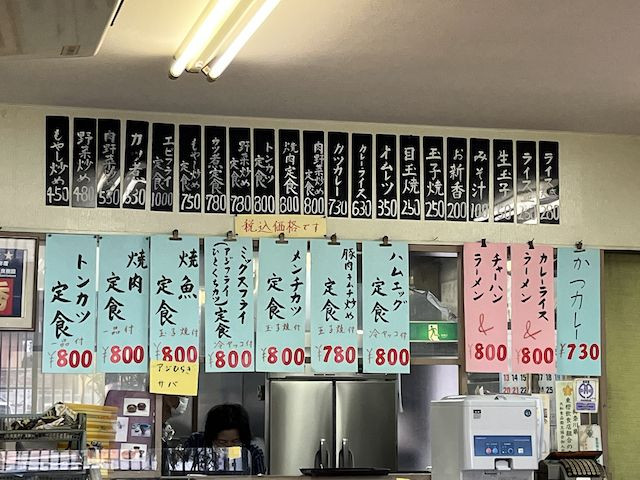 もやし炒め 450
野菜炒め 480
肉野菜炒め 550
カツ煮 630
エビフライ定食 1000
もやし炒め定食 750
カツ煮定食 780
野菜炒め定食 780
トンカツ定食 800
焼肉定食 800
肉野菜炒め定食 800
カツカレー 730
カレーライス 630
オムレツ 350
目玉焼 250
玉子焼 250
お新香 200
みそ汁 100
生玉子
ライス
税込価格です
トンカツ定食 一品付 ¥800
焼肉定食 一品付 ¥800
焼魚定食 玉子焼付 ¥800
アジひらき
サバ
ミックスフライ定食 冷ヤッコ付 ¥800
メンチカツ定食 玉子焼付 ¥800
豚肉キムチ炒め定食 玉子焼付 ¥780
ハムエッグ定食 冷ヤッコ付 ¥800
チャーハン & ラーメン ¥800
カレーライス & ラーメン ¥800
かつカレー ¥730